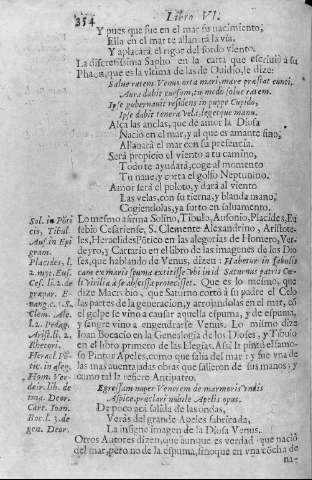 354 Libro VI.
Y pues que fue en el mar su nacimiento,
Ella en el mar te allanará la via,
Y aplacará el rigor del sordo viento.
La discretissima Sapho en la carta que escriuió a su
Phaon, que es la vltima de las de Ouidio, le dize:
Solue ratem, Venus orta mari, mare præstat eunti,
Aura dabit cursum, tu modo solue ratem.
Ipse gubernauit residens in puppe Cupido,
Ipse dabit tenera vela, legetque manu.
Alça las anclas, que de amor la Diosa
Nació en el mar, y al que es amante fino,
Allanará el mar con su presencia.
Será propicio el viento a tu camino,
Todo te ayudará, coge al momento
Tu naue, y corta el golfo Neptunino.
Amor será el piloto, y dará al viento
Las velas, con su tierna, y blanda mano,
Cogiendolas, ya sorto en saluamento.
Lo mesmo afirma Solino, Tibulo, Ausonio, Placides, Eu
sebio Cesariense, S. Clemente Alexandrino, Aristote-
les, Heraclides Põtico en las alegorias de Homero, Ver-
deyro, y Cartario en el libro de las imagenes de los Dio
ses, que hablando de Venus, dizen: Habetur in fabulis
eam ex maris spuma extitisse, vbi in id Saturnus patris Cœ-
li virilia à se abscissa proiecisset. Que es lo mesmo, que
dize Macrobio, que Saturno cortò a su padre el Celo
las partes de la generacion, y arrojandolas en el mar, cõ
el golpe se vino a causar aquella espuma, y de espuma,
y sangre vino a engendrarse Venus. Lo mismo dize
Ioan Bocacio en la Genealogia de los Dioses, y Tibulo
en el libro primero de las Elegias. Assi la pintò el famo-
so Pintor Apeles, como que salia del mar: y fue vna de
las mas auentajadas obras que salieron de sus manos: y
como tal la refiere Antipatro.
Egressam nuper Venerem de marmoris vndis
Aspice, præclari nobile Apelis opus.
De poco acá salida de las ondas,
Verás del grande Apeles fabricada,
La insigne imagen de la Diosa Venus.
Otros Autores dizen, que aunque es verdad que nació
del mar, pero no de la espuma, sino que en vna cõcha de
na-
Sol. in Põti
cis, Tibul.
Aus. in Epi
gram.
Placides, l.
2. myt. Eus.
Ces. li. 2. de
prepar. E-
uang. c. 1. S.
Clem. Ale.
l. 2. Pedag.
Arist. li. 2.
Rhetori.
Heracl. Põ-
tic. in aleg.
Hom. Ver-
deir. lib. de
ima. Deor.
Cart. Ioan.
Boc. l. 3. de
gen. Deor.